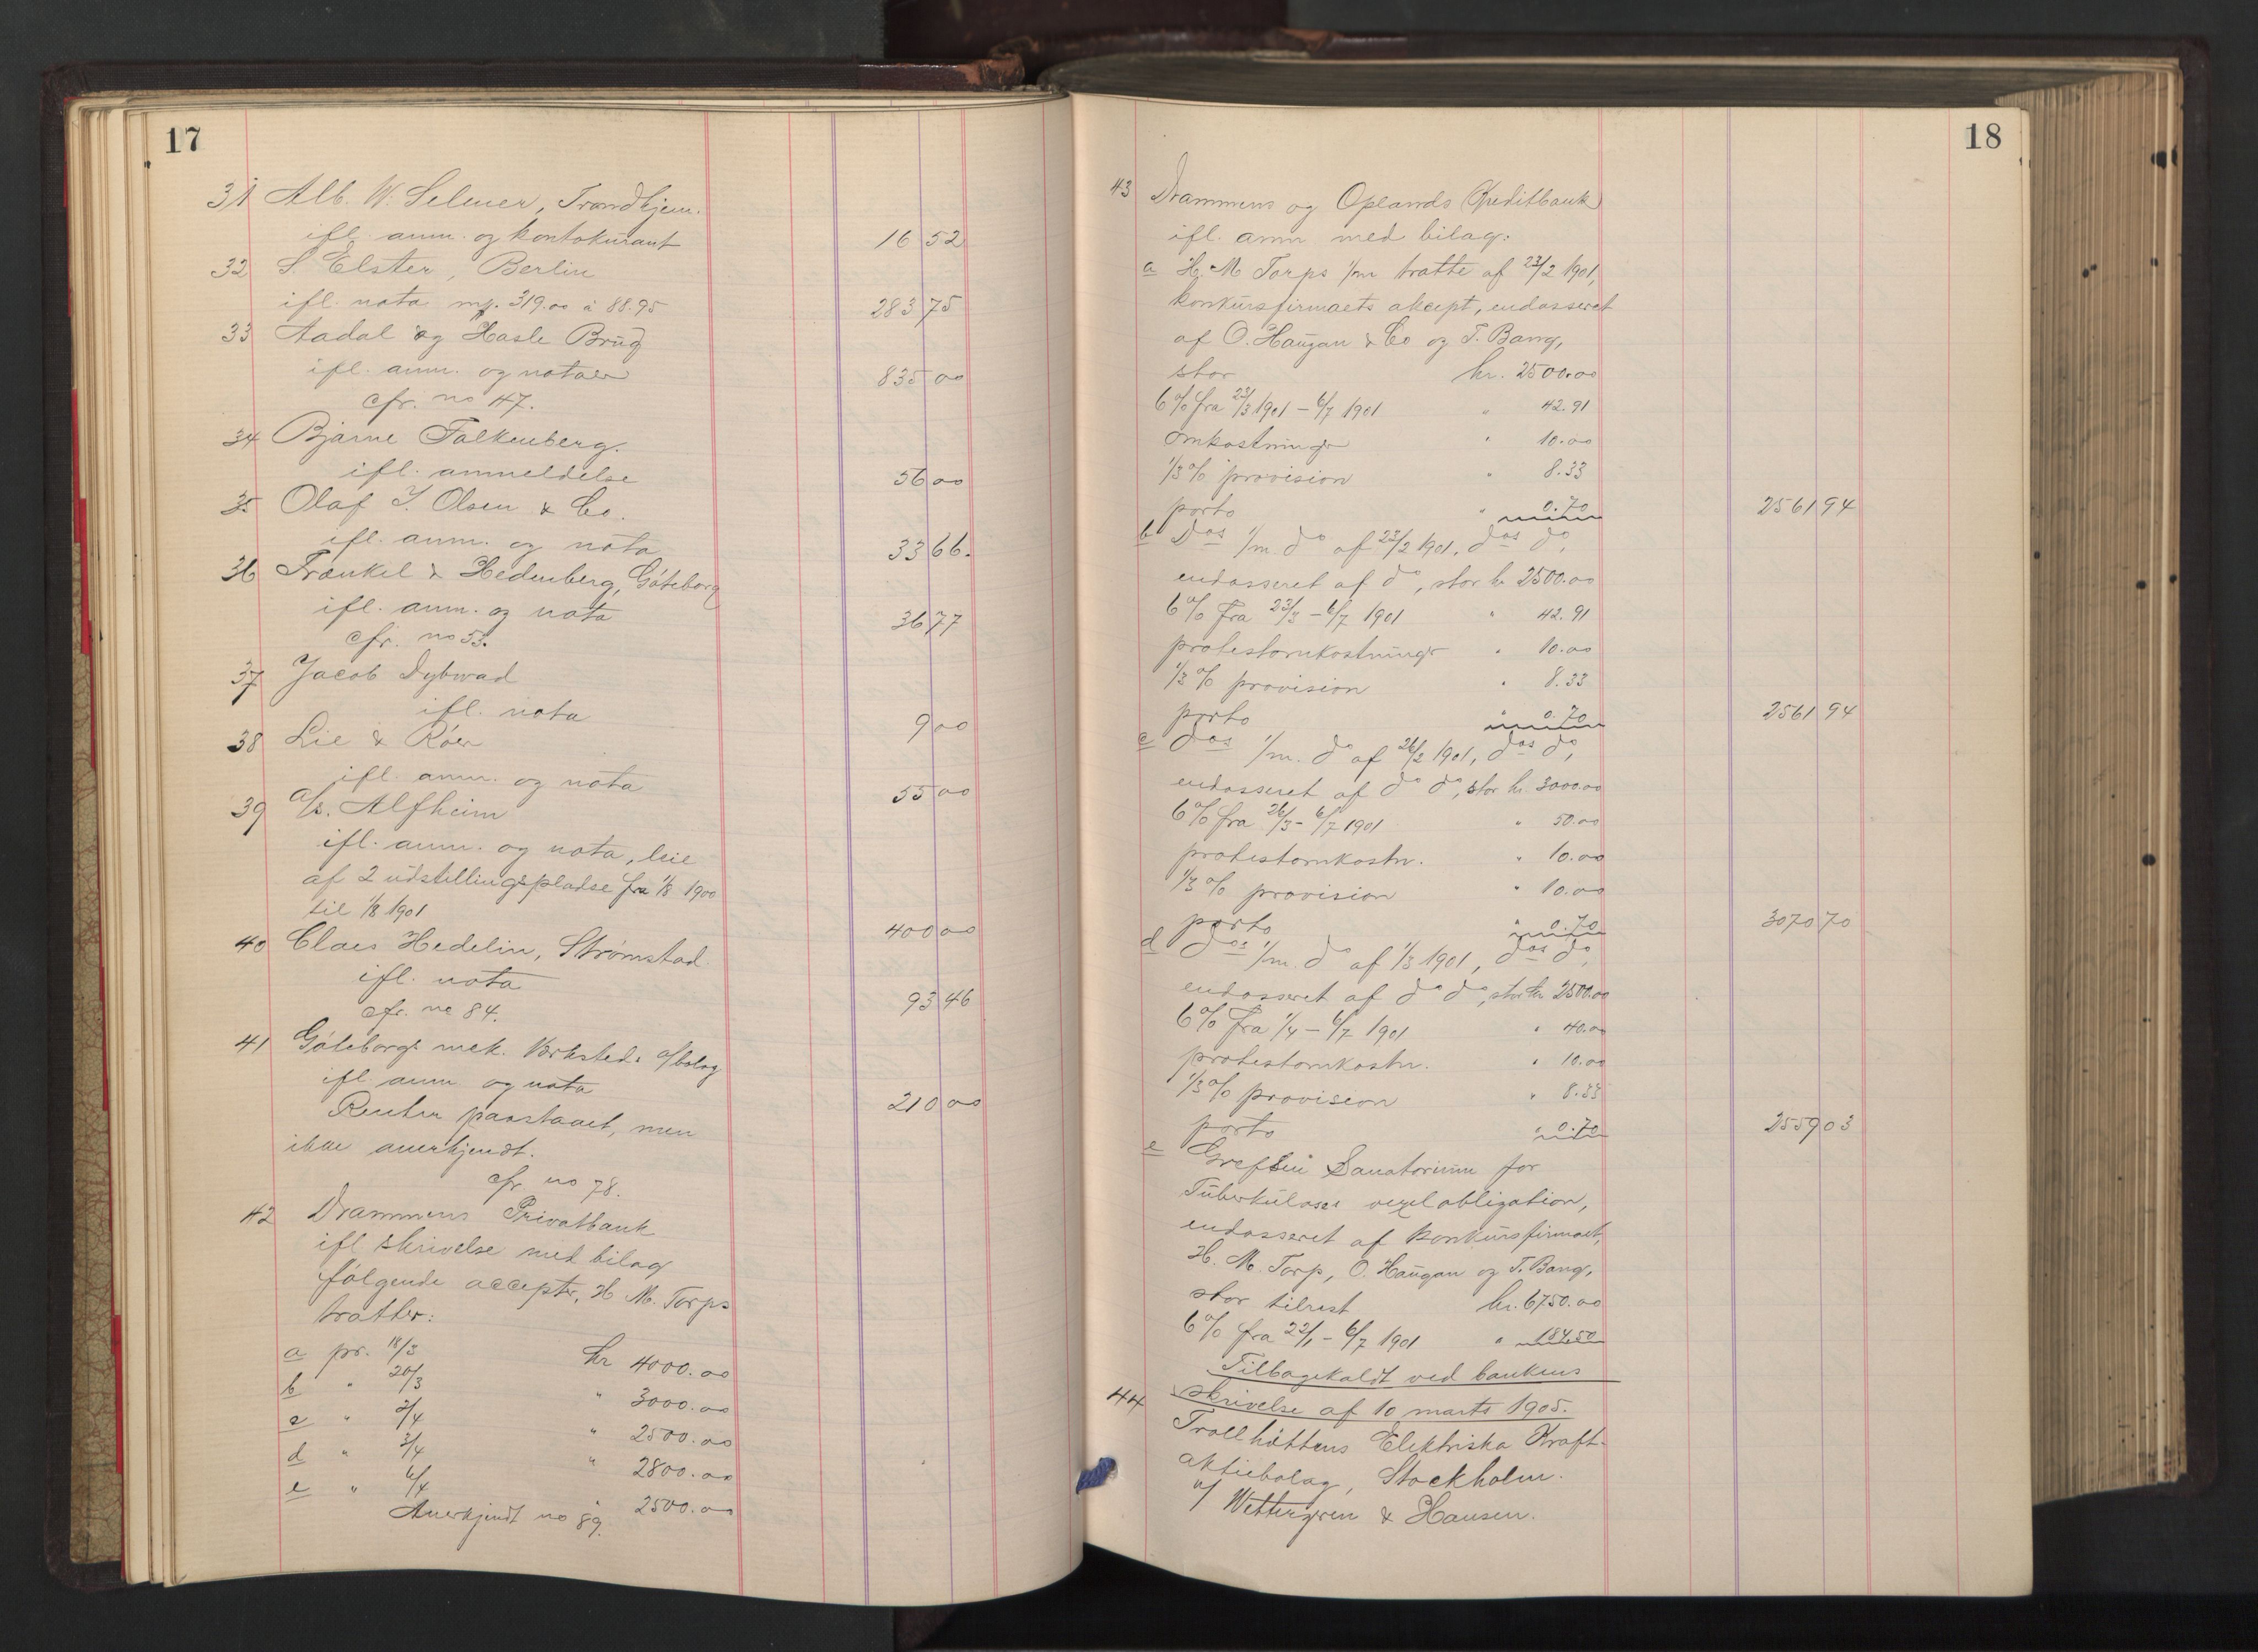 17
31 Alb. W. Selmer, Trondhjem.
ifl. anm. og kontokurant 16 52
32 S. Elster, Berlin
ifl. nota mk. 319.00 à 88.95 283 75
33 Aadal og Hasle Brug
ifl. anm. og notaer 835 00
cfr. no 47.
34 Bjarne Falkenberg.
ifl. anmeldelse 56 00
35 Olaf T. Olsen & Co.
ifl. anm. og nota 33 66.
36 Frænkel & Hedenberg, Göteborg
ifl. anm. og nota 36 77
cfr. no 53.
37 Jacob Dybwad
ifl. nota 9 00
38 Lie & Röer
ifl. anm. og nota 55 00
39 a/s. Alfheim
ifl. anm. og nota, leie
af 2 udstillingspladse fra 1/8 1900
til 1/8 1901 400 00
40 Claes Hedelin, Strømstad.
ifl. nota 93 46
cfr. no 84.
41 Göteborgs mek. Værksteds a/bolag
ifl. anm. og nota 210 00
Renter paastaaet, men
ikke anerkjendt.
cfr. no 78.
42 Drammens Privatbank
ifl skrivelse med bilag
følgende accepter, H. M. Torps
tratter:
a pr. 18/3 kr 4000.00
b " 20/3 " 3000.00
c " 2/4 " 2500.00
d " 3/4 " 2800.00
e " 6/4 " 2500.00
Anerkjendt no 89.
18
43 Drammens og Oplands Kreditbank
ifl. anm med bilag:
a H. M Torps 1/m tratte af 23/2 1901,
konkursfirmaets akcept, endosseret
af O. Haugan & Co og T. Bang,
stor kr. 2500.00
6% fra 23/3 1901 – 6/7 1901 " 42.91
omkostninger " 10.00
1/3% provision " 8.33
porto " 0.70 2561 94
b Dos 1/m. do af 23/2 1901, dos do,
endosseret af do, stor kr 2500.00
6% fra 23/3 – 6/7 1901 " 42.91
protestomkostninger " 10.00
1/3% provision " 8.33
porto " 0.70 2561 94
c dos 1/m. do af 26/2 1901, dos do,
endosseret af do do, stor kr. 3000.00
6% fra 26/3 – 6/7 1901 " 50.00
protestomkostn. " 10.00
1/3% provision " 10.00
porto " 0.70 3070 70
d dos 1/m. do af 1/3 1901, dos do,
endosseret af do do, stor kr 2500.00
6% fra 1/4 – 6/7 1901 " 40.00
protestomkostn. " 10.00
1/3% provision " 8.33
porto " 0.70 2559 03
e Grefsen Sanatorium for
Tuberkuloses vexelobligation,
endosseret af konkursfirmaet,
H. M. Torp, O. Haugan og T. Bang,
stor tilrest kr. 6750.00
6% fra 22/1 – 6/7 1901 " 184.50
Tilbagekaldt ved bankens
skrivelse af 10 marts 1905.
44 Trollhättans Elektriska Kraft-
aktiebolag, Stockholm.
v/ Wettergren & Hansen.